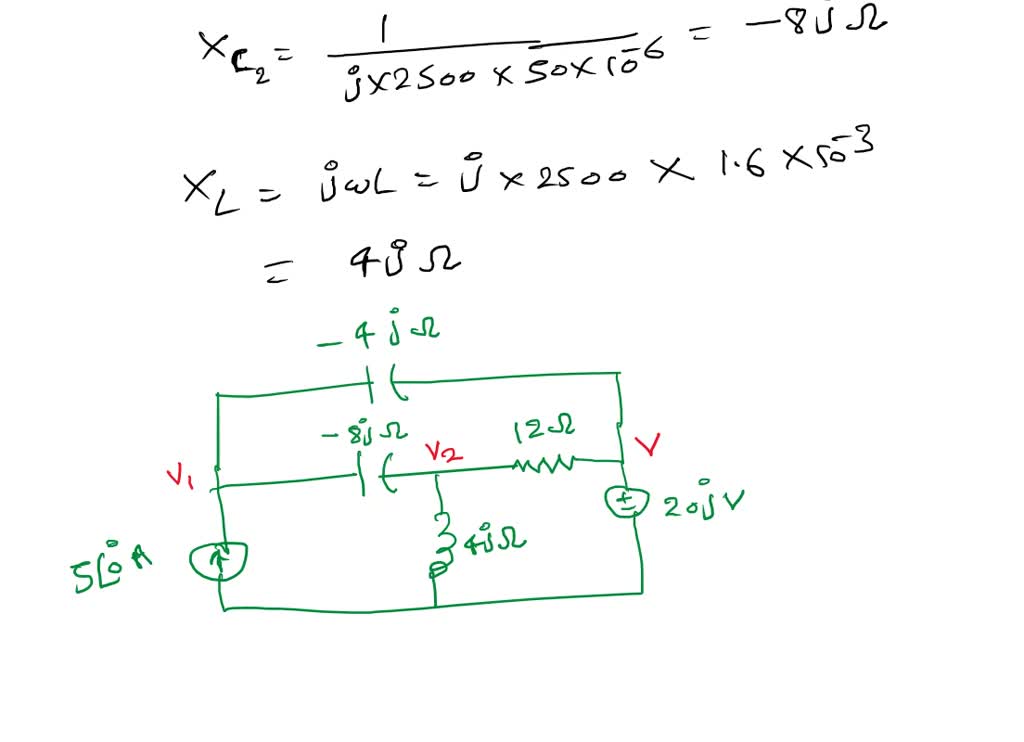 X_C₂ = 1 / (j×2500 × 50×10⁻⁶) = −8j Ω
X_L = jωL = j × 2500 × 1.6 × 10⁻³
= 4j Ω
−4jΩ
−8jΩ
V₂
12Ω
V₁
V
20jV
4jΩ
5∠0° A